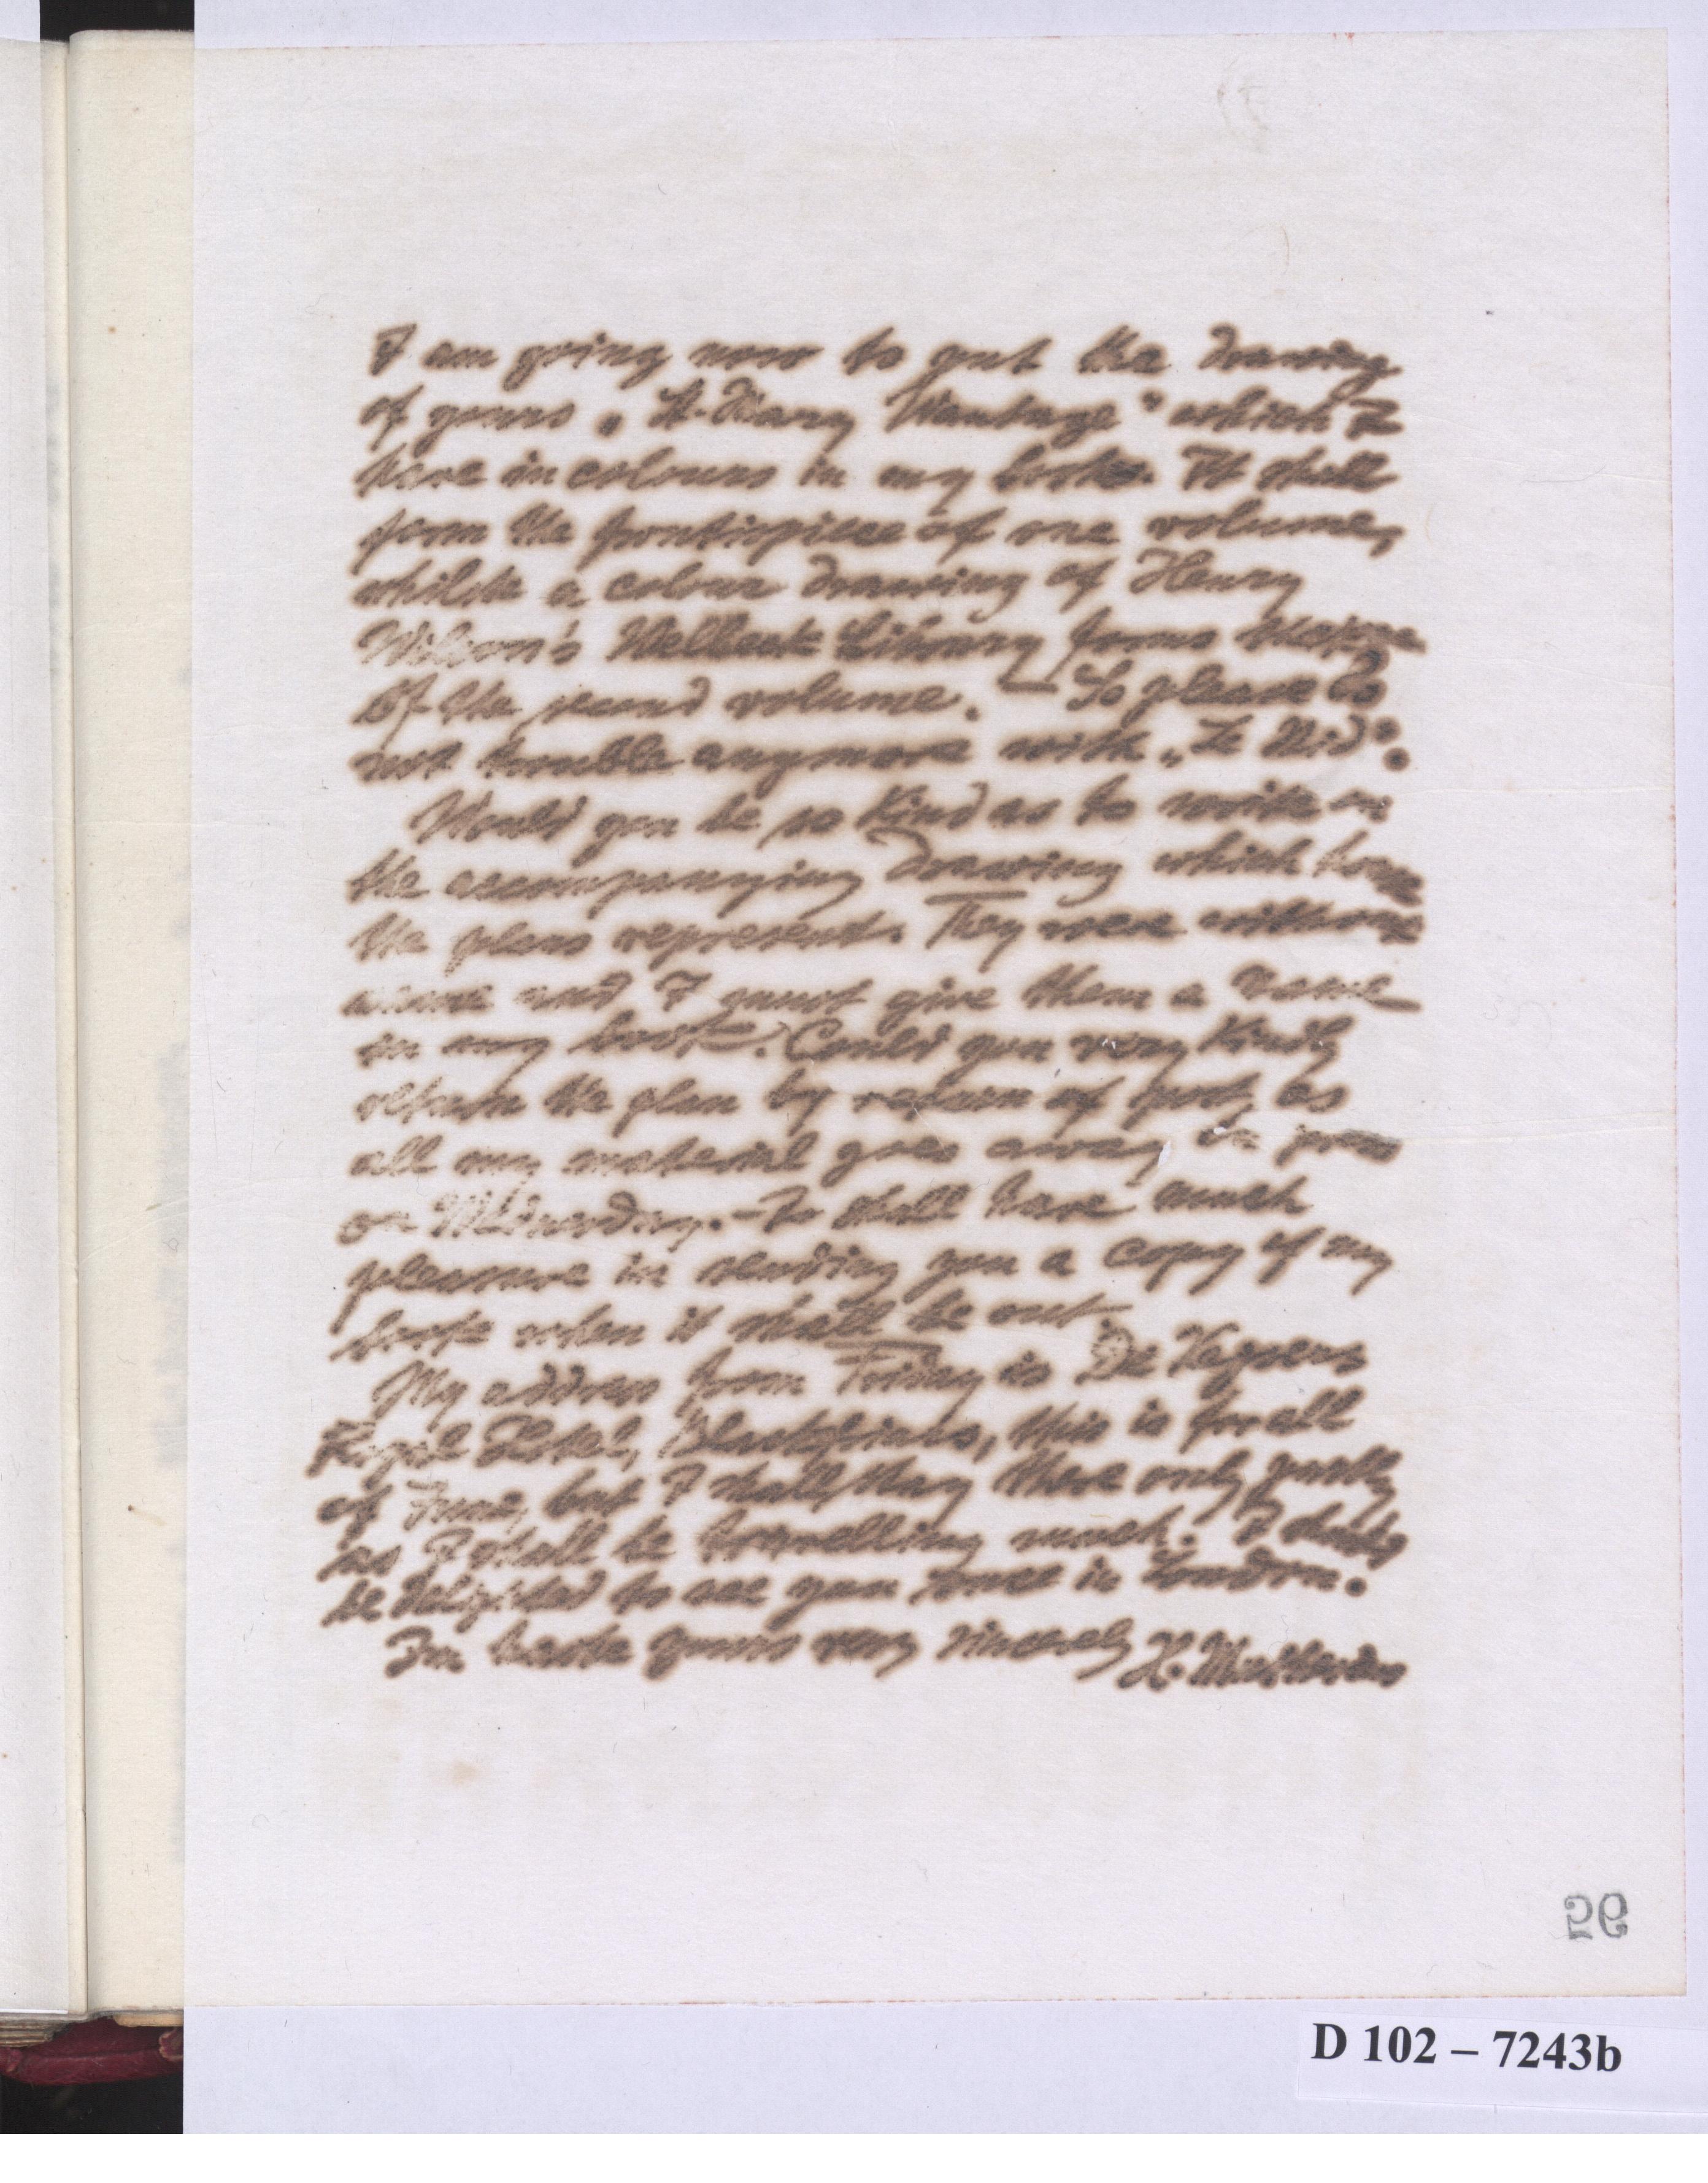 I am going now to put the drawing
of yours „St. Mary Wantage" which I
have in colours in my book. It shall
form the frontispiece of one volume,
whilst a colour drawing of Henry
Wilson's Welbeck Library forms
of the second volume. — So please do
not trouble anymore with „Le Nid".
Would you be so kind as to write on
the accompanying drawing which house
the plans represent. They were without
name and I must give them a name
in my book. Could you very kindly
return the plan by return of post, as
all my material goes away in press
on Wednesday. – I shall have much
pleasure in sending you a copy of my
book when it shall be out.
My address from Friday is De Keysers
Royal Hotel, Blackfriars, this is for all
of June, but I shall stay there only partly
as I shall be travelling much. I should
be delighted to see you once in London.
In haste yours very sincerely H. Muthesius
56
D 102 – 7243b